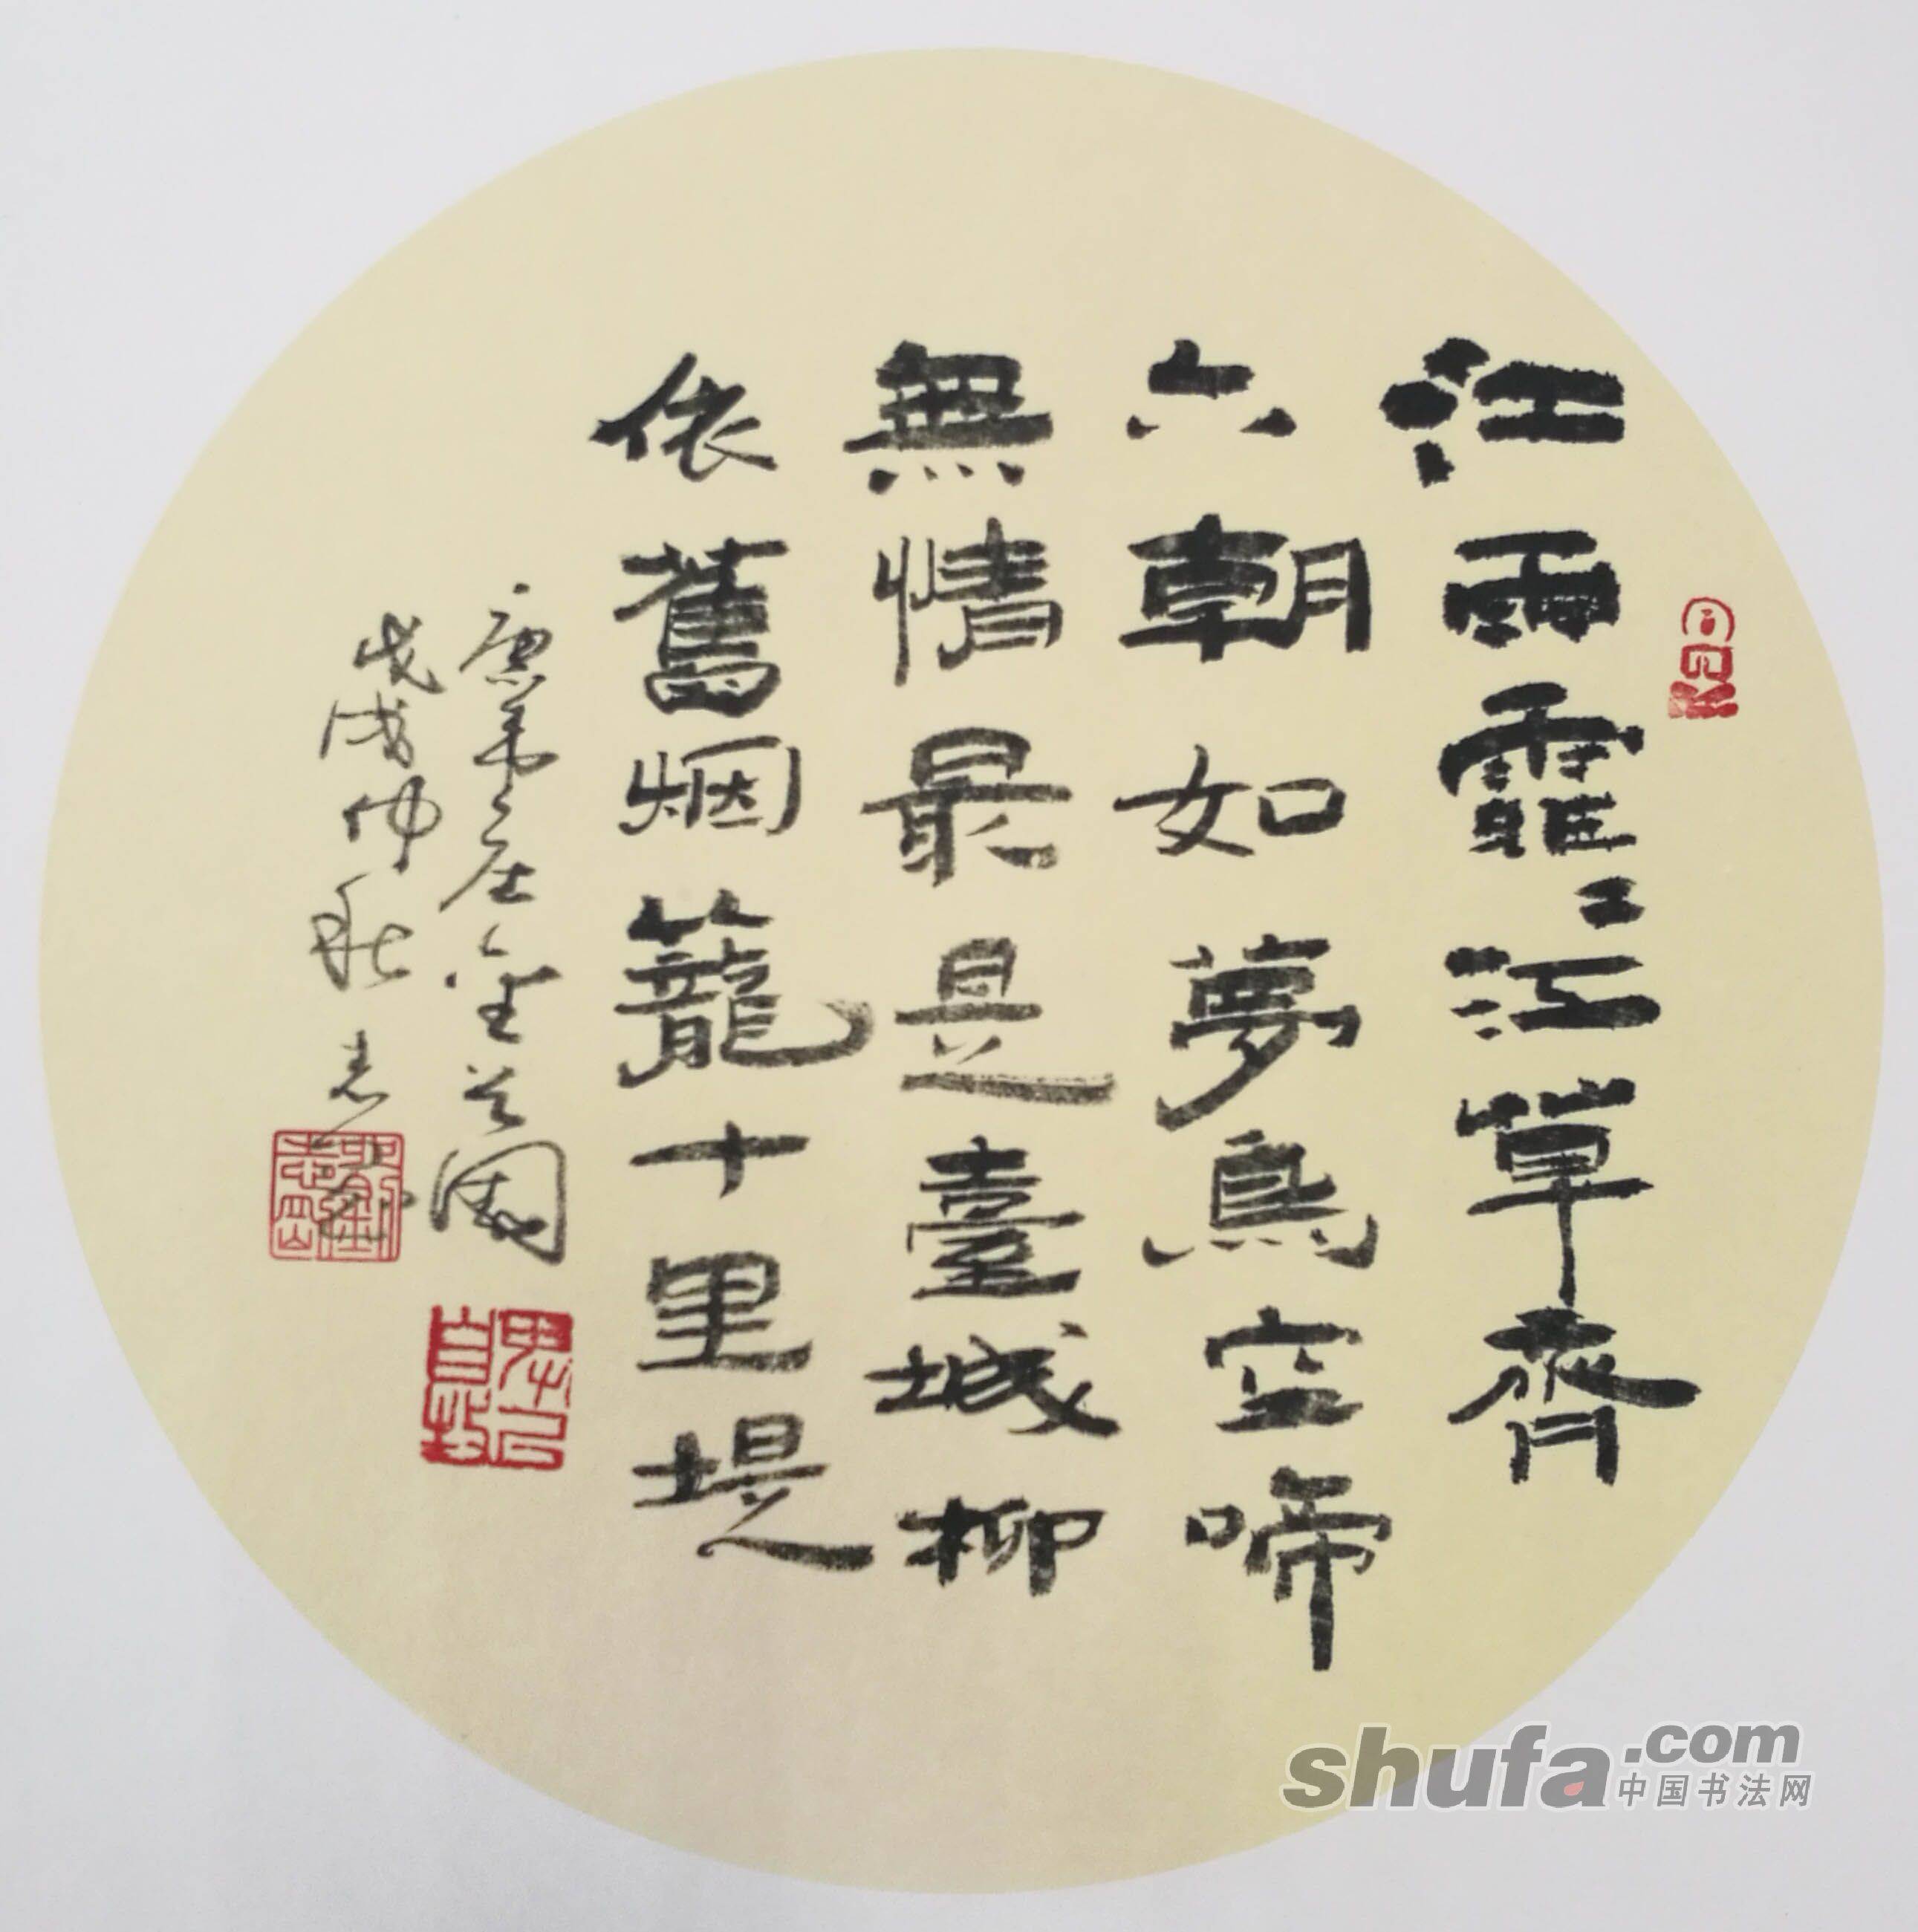 江雨霏〻江草齊
六朝如夢鳥空啼
無情最是臺城柳
依舊烟籠十里堤
唐韋庄金陵圖
戊戌仲秋志
卑以自牧
shufa.com
中国书法网